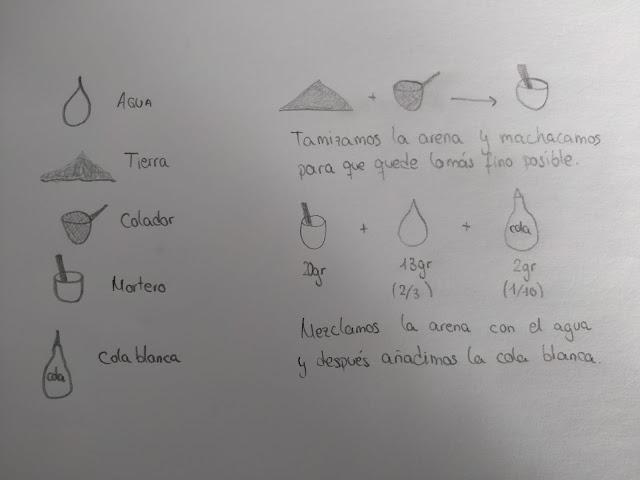 AGUA
Tierra
Colador
Mortero
Cola blanca
cola
+
Tamizamos la arena y machacamos
para que quede lo más fino posible.
+ + cola
20gr 13gr 2gr
(2/3) (1/10)
Mezclamos la arena con el agua
y después añadimos la cola blanca.